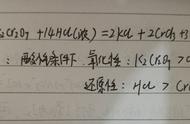 2Cr2O7 +14HCl(浓) = 2KCl + 2CrCl3 +3
: 酸性条件下 氧化性: K2Cr2O7 > C
还原性: HCl > Cr